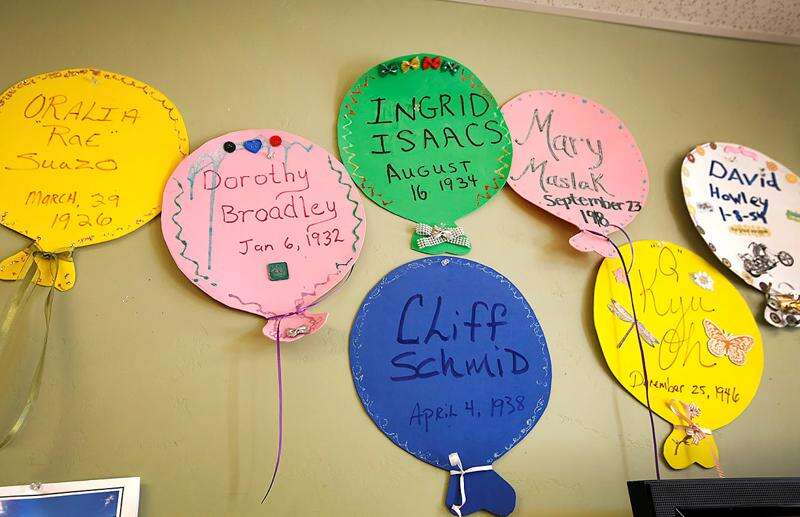 ORALIA
"Rae"
Suazo
March, 29
1926
Dorothy
Broadley
Jan 6, 1932
INGRID
ISAACS
August
16 1934
Cliff
Schmid
April 4, 1938
Mary
Maslak
September 23
Q
Kyu
Oh
December 25, 1946
DAVid
Howley
1-8-54